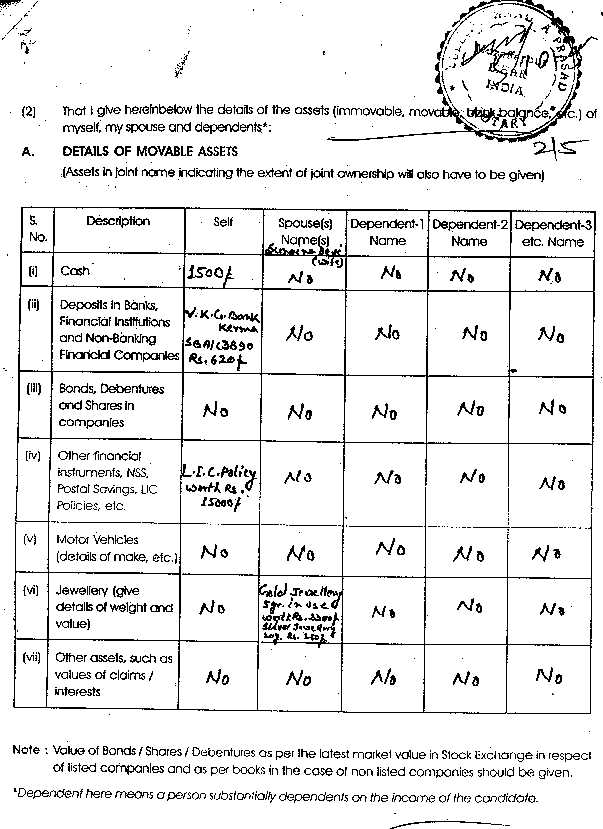 A PRASAD
INDIA
NOTARY
(2) That I give hereinbelow the details of the assets (immovable, movable, bank balance, etc.) of
myself, my spouse and dependents*:
2/5
A. DETAILS OF MOVABLE ASSETS
(Assets in joint name indicating the extent of joint ownership will also have to be given)
S. No. Description Self Spouse(s) Name(s) Dependent-1 Name Dependent-2 Name Dependent-3 etc. Name
Devi (wife)
(i) Cash 1500/- No No No No
(ii) Deposits in Banks, Financial Institutions and Non-Banking Financial Companies V.K.G. Bank Rs. 620/- No No No No
(iii) Bonds, Debentures and Shares in companies No No No No No
(iv) Other financial instruments, NSS, Postal Savings, LIC Policies, etc. L.I.C. Policy worth Rs. 15000/- No No No No
(v) Motor Vehicles (details of make, etc.) No No No No No
(vi) Jewellery (give details of weight and value) No Gold 5gr. in used worth Rs. Silver Rs. 250/- No No No
(vii) Other assets, such as values of claims / interests No No No No No
Note : Value of Bonds / Shares / Debentures as per the latest market value in Stock Exchange in respect
of listed companies and as per books in the case of non listed companies should be given.
*Dependent here means a person substantially dependents on the income of the candidate.